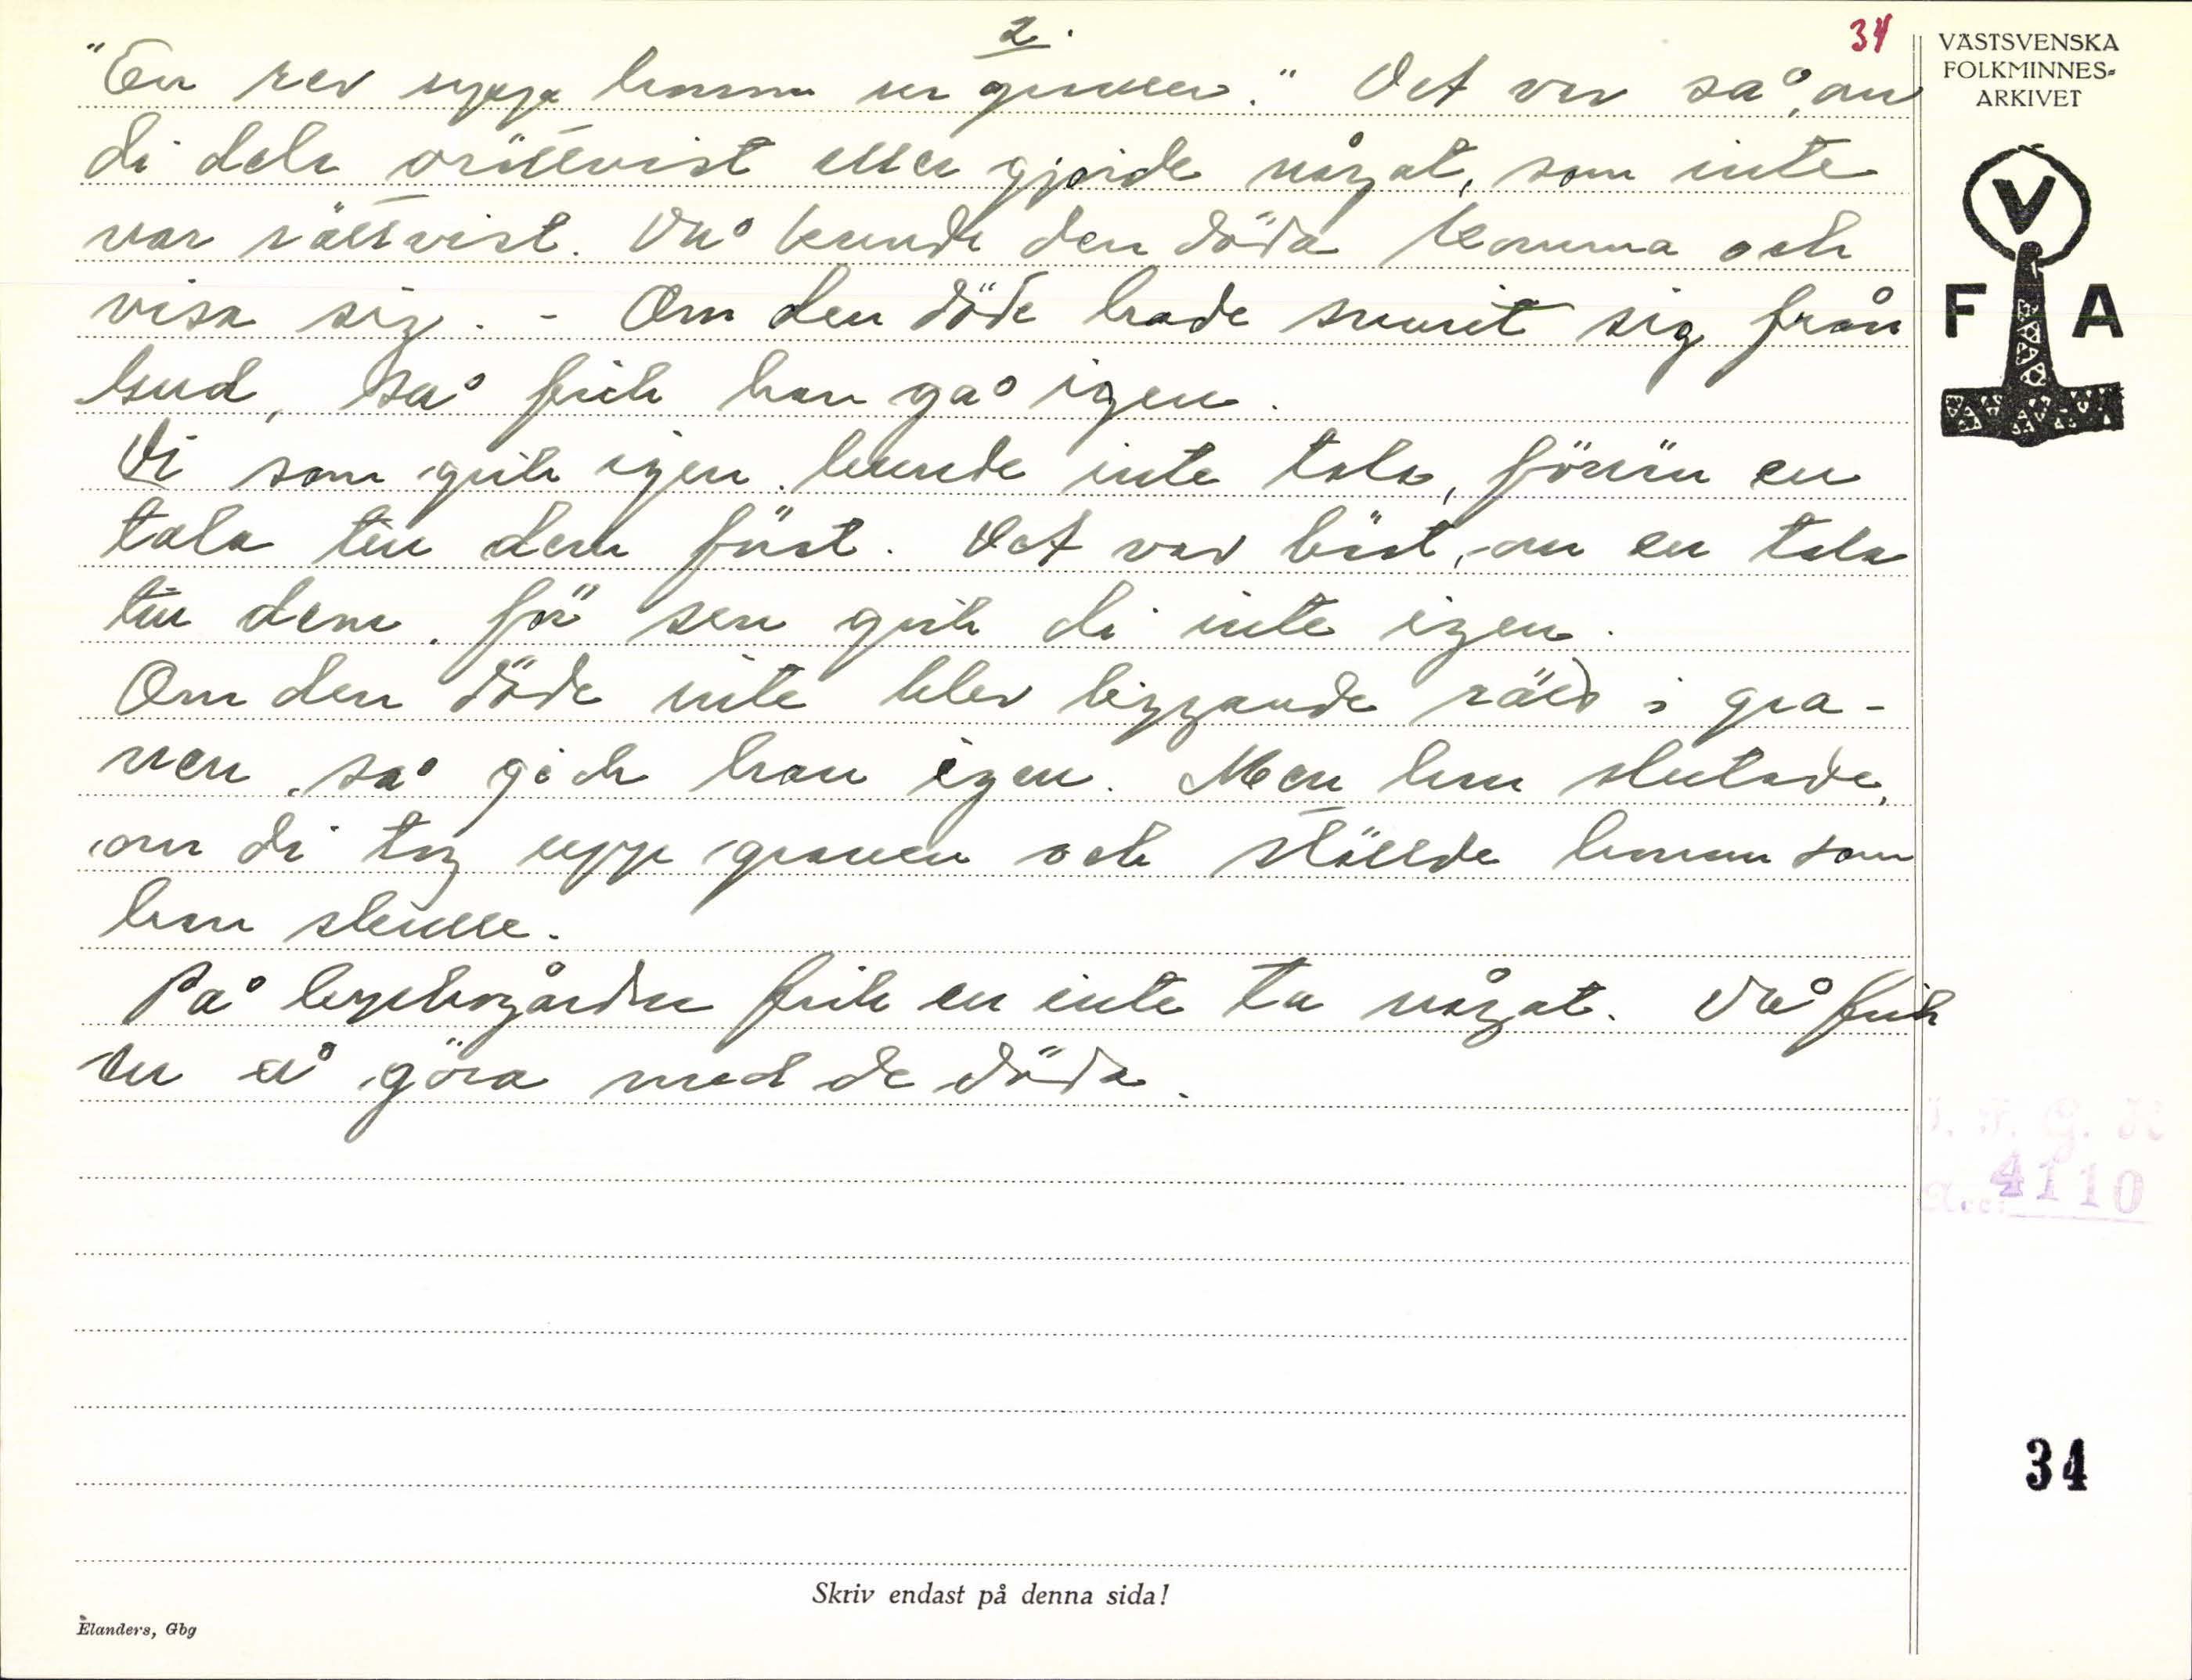 2.
34
"En rev uppa honom ur graven." Det var så, om
di dela orättvist eller gjorde något, som inte
var rättvist. Då kunde den döda komma och
visa sig. - Om den döde hade svurit sig från
Gud, så fick han gå igen.
Di som gick igen kunde inte tala, förrän en
tala till dem först. Det var bäst, om en tala
till dem, för sen gick di inte igen.
Om den döde inte blev liggande rätt i gra-
ven, så gick han igen. Men han slutade,
om di tog upp graven och ställde honom som
han skulle.
På kyrkogården fick en inte ta något. Då fick
en å göra med de döda.
VÄSTSVENSKA
FOLKMINNES-
ARKIVET
V
F A
4110
34
Skriv endast på denna sida!
Elanders, Gbg